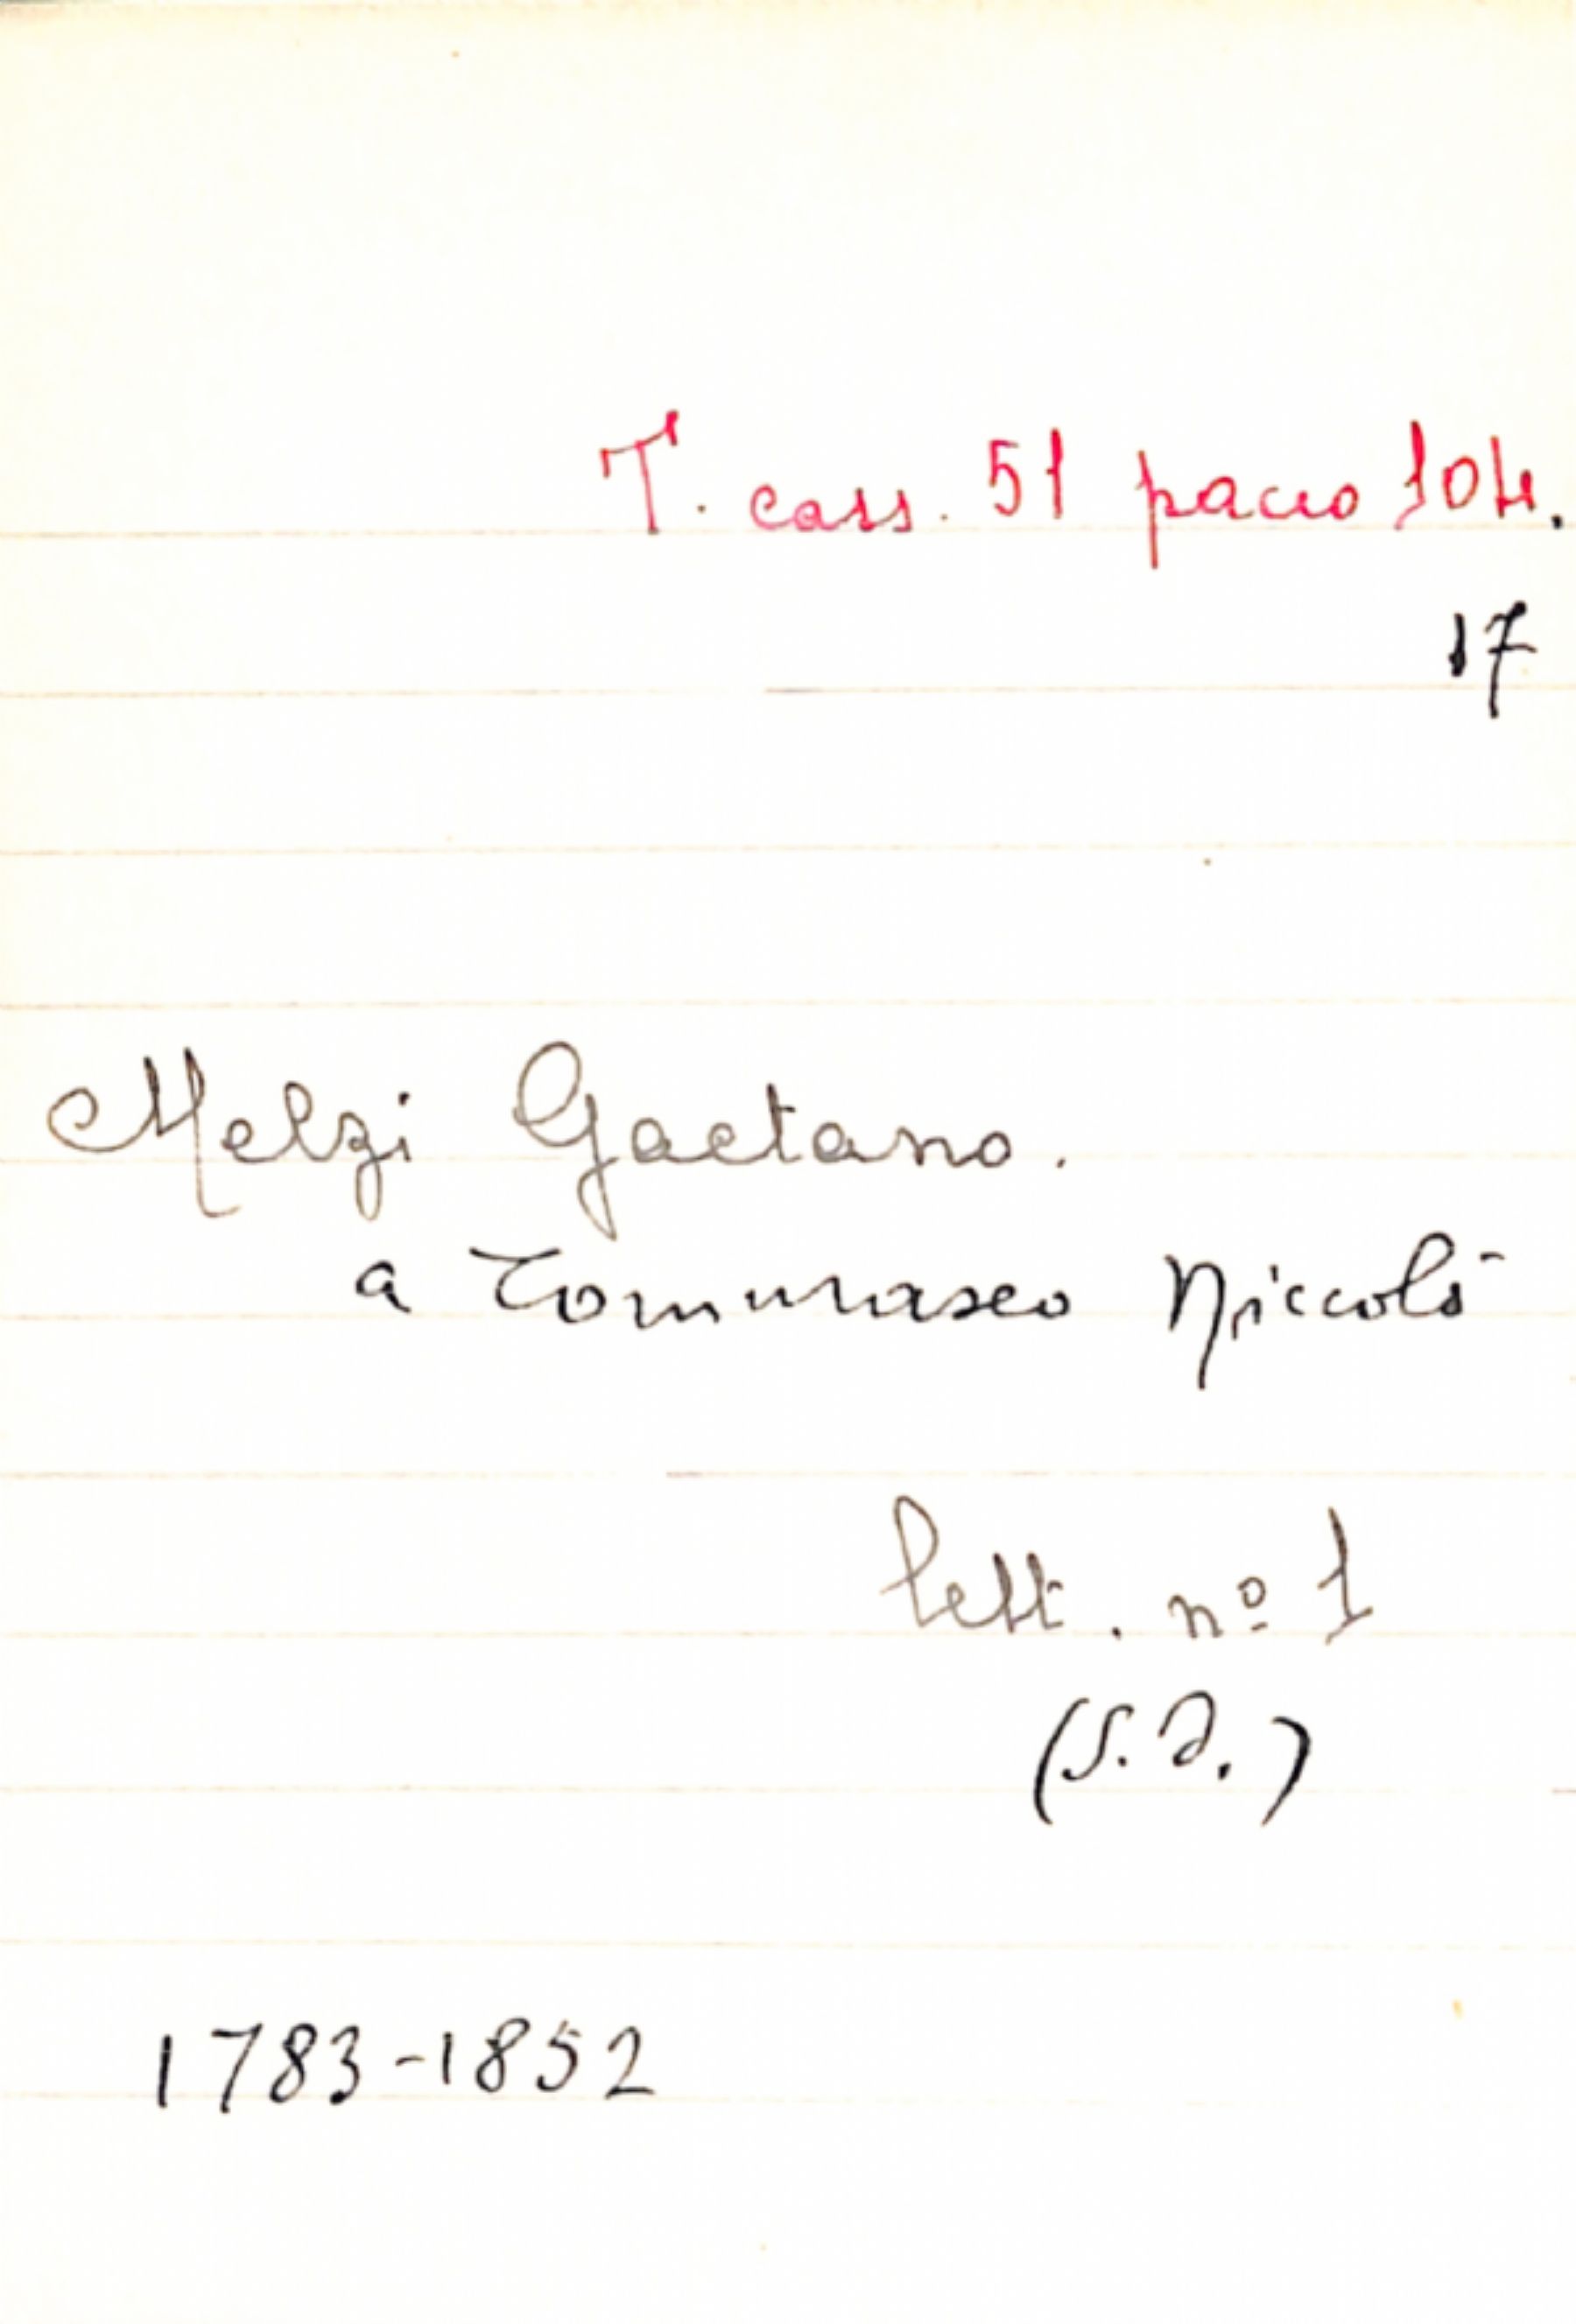 T. cass. 51 pacco 104.
17
Melzi Gaetano.
a Tommaseo Niccolò
lett. nº 1
(s. d.)
1783-1852